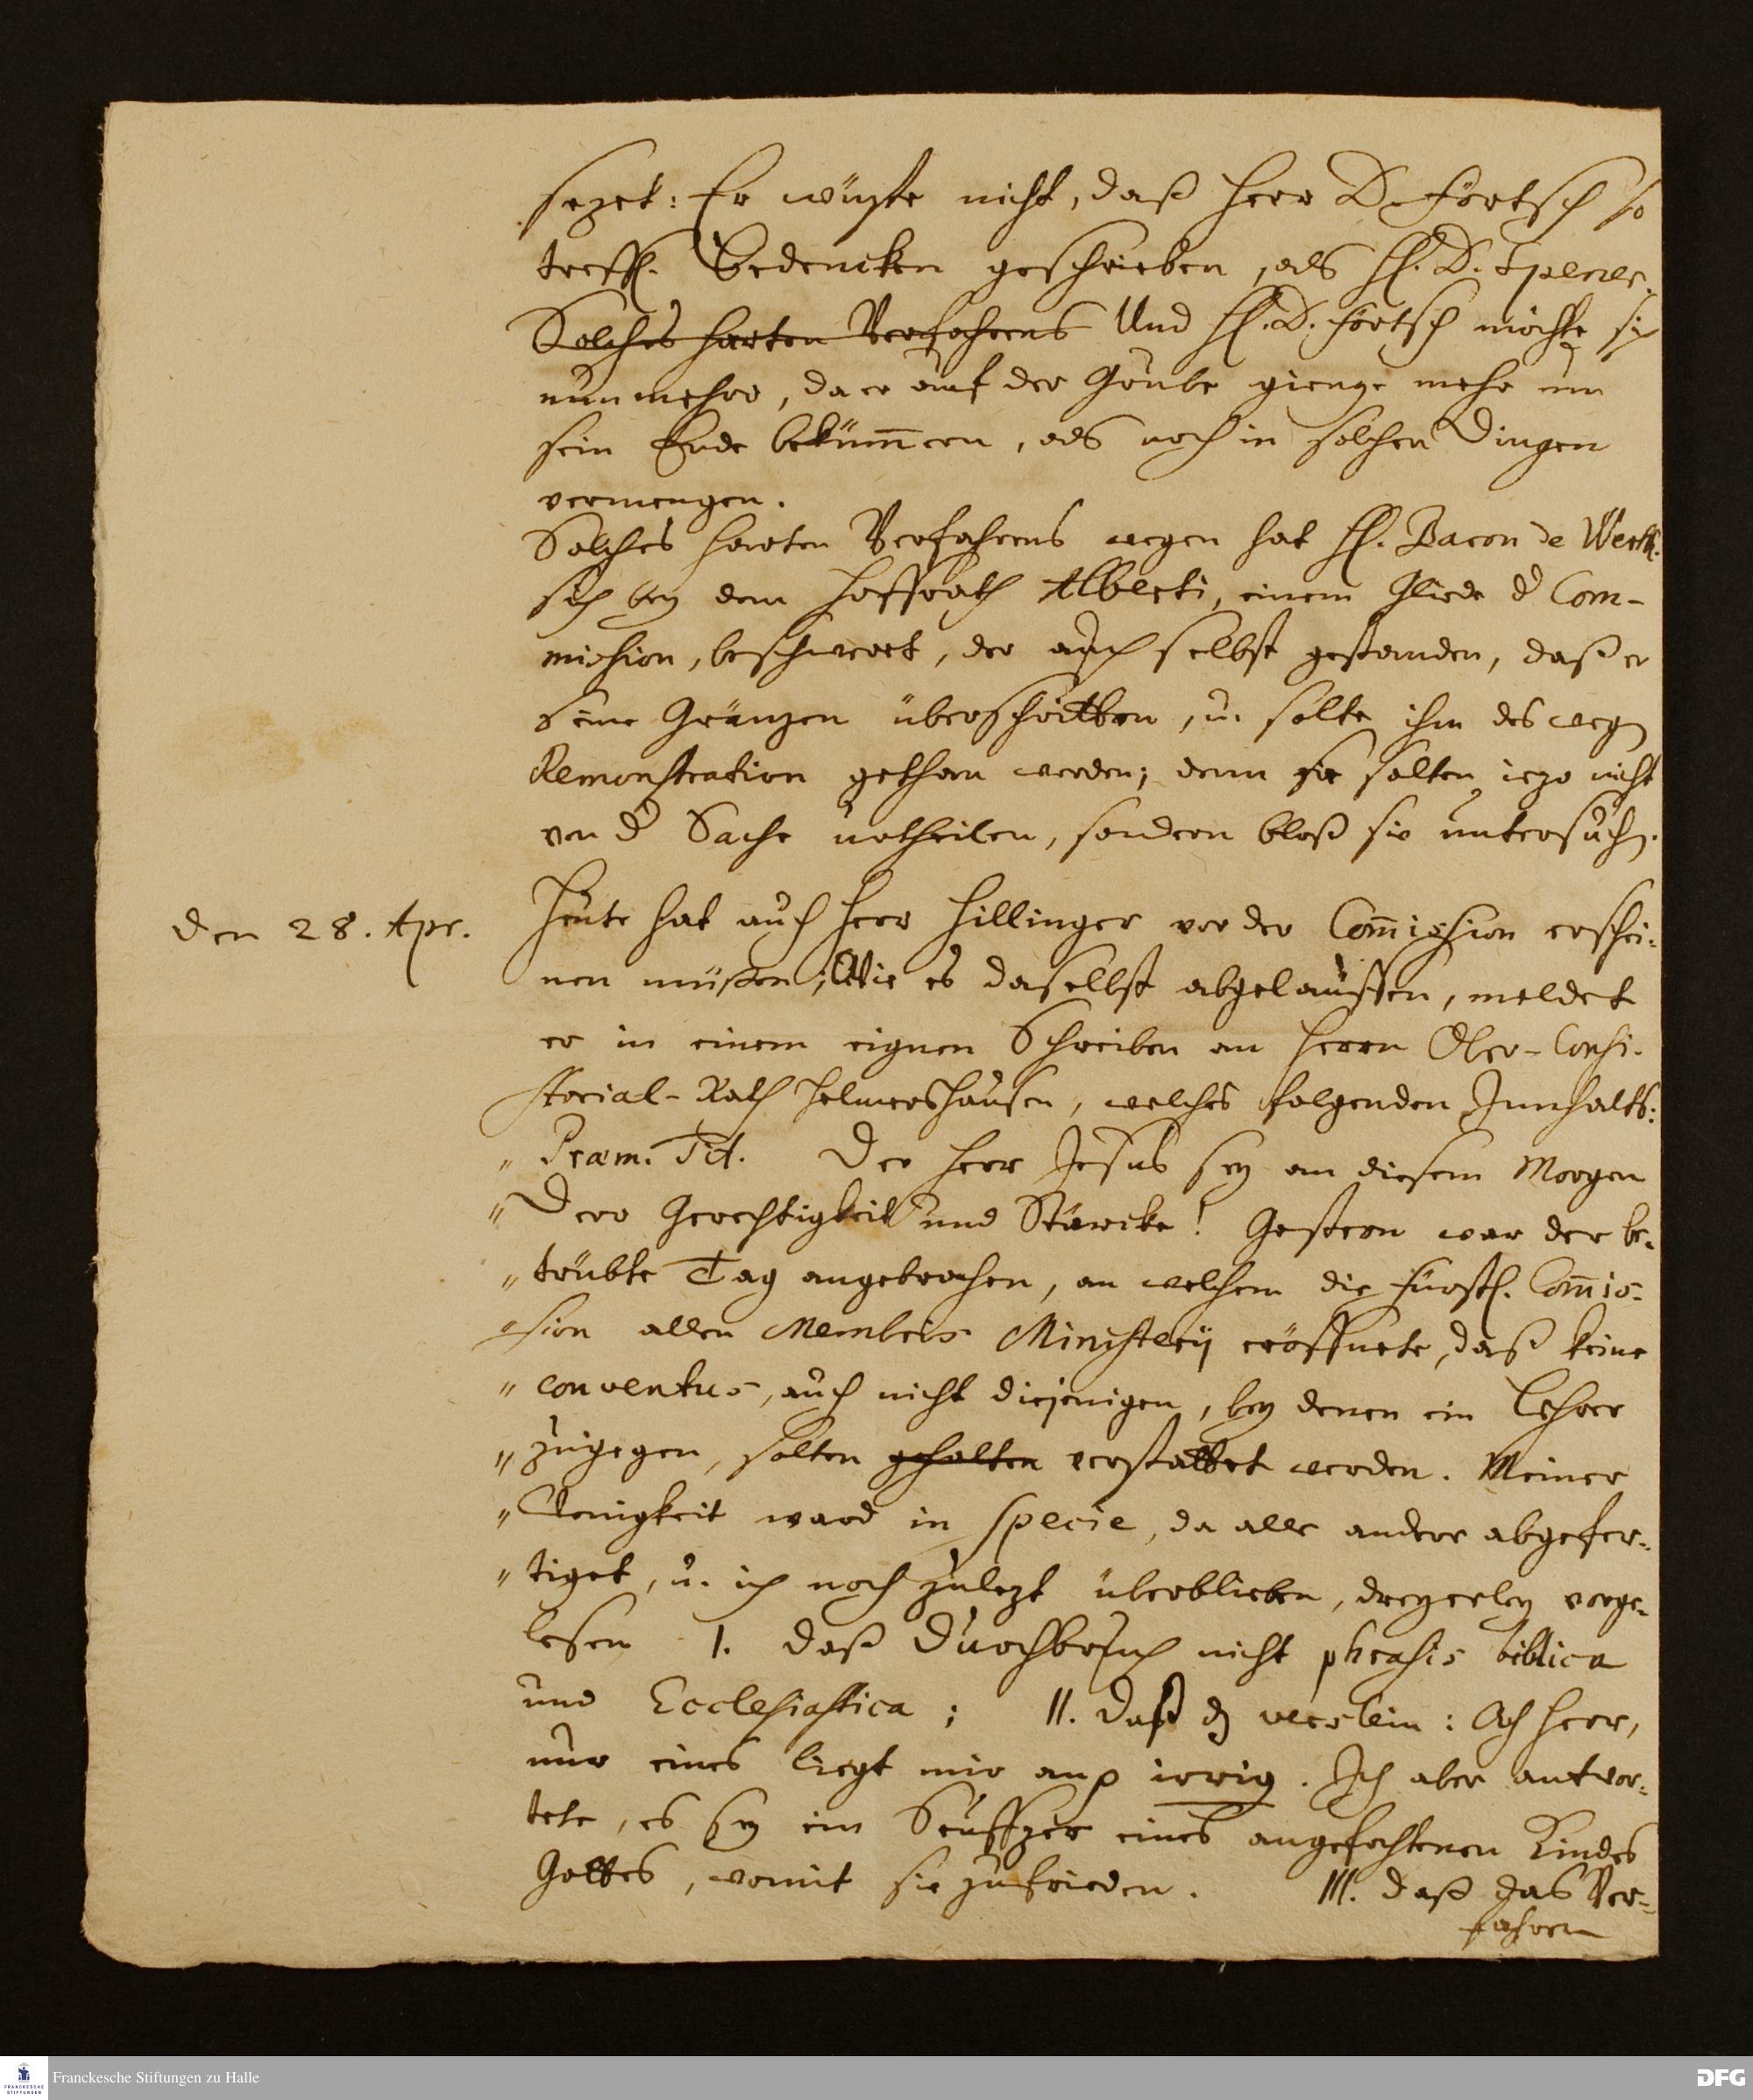 sezet: Er wüste nicht, daß Herr D. Förtsch so
treffl. Bedencken geschrieben, als H. D. Spener.
Solches harten Verfahrens Und H. D. Förtsch möchte sich
nunmehro, da er auf der Grube gienge mehr um
sein Ende bekümmern, als noch in solchen Dingen
vermengen.
Solches harten Verfahrens wegen hat H. Baron de Werth.
sich bey dem Hoffrath Alberti, einem Gliede d. Com-
mission, beschwert, der auch selbst gestanden, daß er
seine Gränzen überschritten, u. solte ihm deswegen
Remonstration gethan werden; denn sie solten iezo nicht
von d. Sache urtheilen, sondern bloß sie untersuchen.
den 28. Apr.
Heute hat auch Herr Hillinger vor der Com̅ission erschei-
nen müßen; Wie es daselbst abgelauffen, meldet
er in einem eignen Schreiben an Herrn Ober-Consi-
storial-Rath Helmershausen, welches folgenden Innhalts:
" Præm. Tit. Der Herr Jesus sey an diesem Morgen
" Dero Gerechtigkeit und Stärcke! Gestern war der be-
" trübte Tag angebrochen, an welchem die Fürstl. Com̅is-
" sion allen Membris Ministerij eröffnete, daß keine
" conventus, auch nicht diejenigen, bey denen ein Lehrer
" zugegen, solten gehalten verstattet werden. Meiner
" Wenigkeit ward in specie, da alle andere abgefer-
" tiget, u. ich noch zulezt überblieben, dreyerley vorge-
lesen 1. daß Durchbruch nicht phrasis biblica
und Ecclesiastica; II. daß das verslein: Ach Herr,
nur eines liegt mir an irrig. Ich aber antwor-
tete, es sey ein Seuffzer eines angefochtenen Kindes
Gottes, womit sie zufrieden. III. daß das Ver-
fahren
Franckesche Stiftungen zu Halle
FRANCKESCHE STIFTUNGEN
DFG